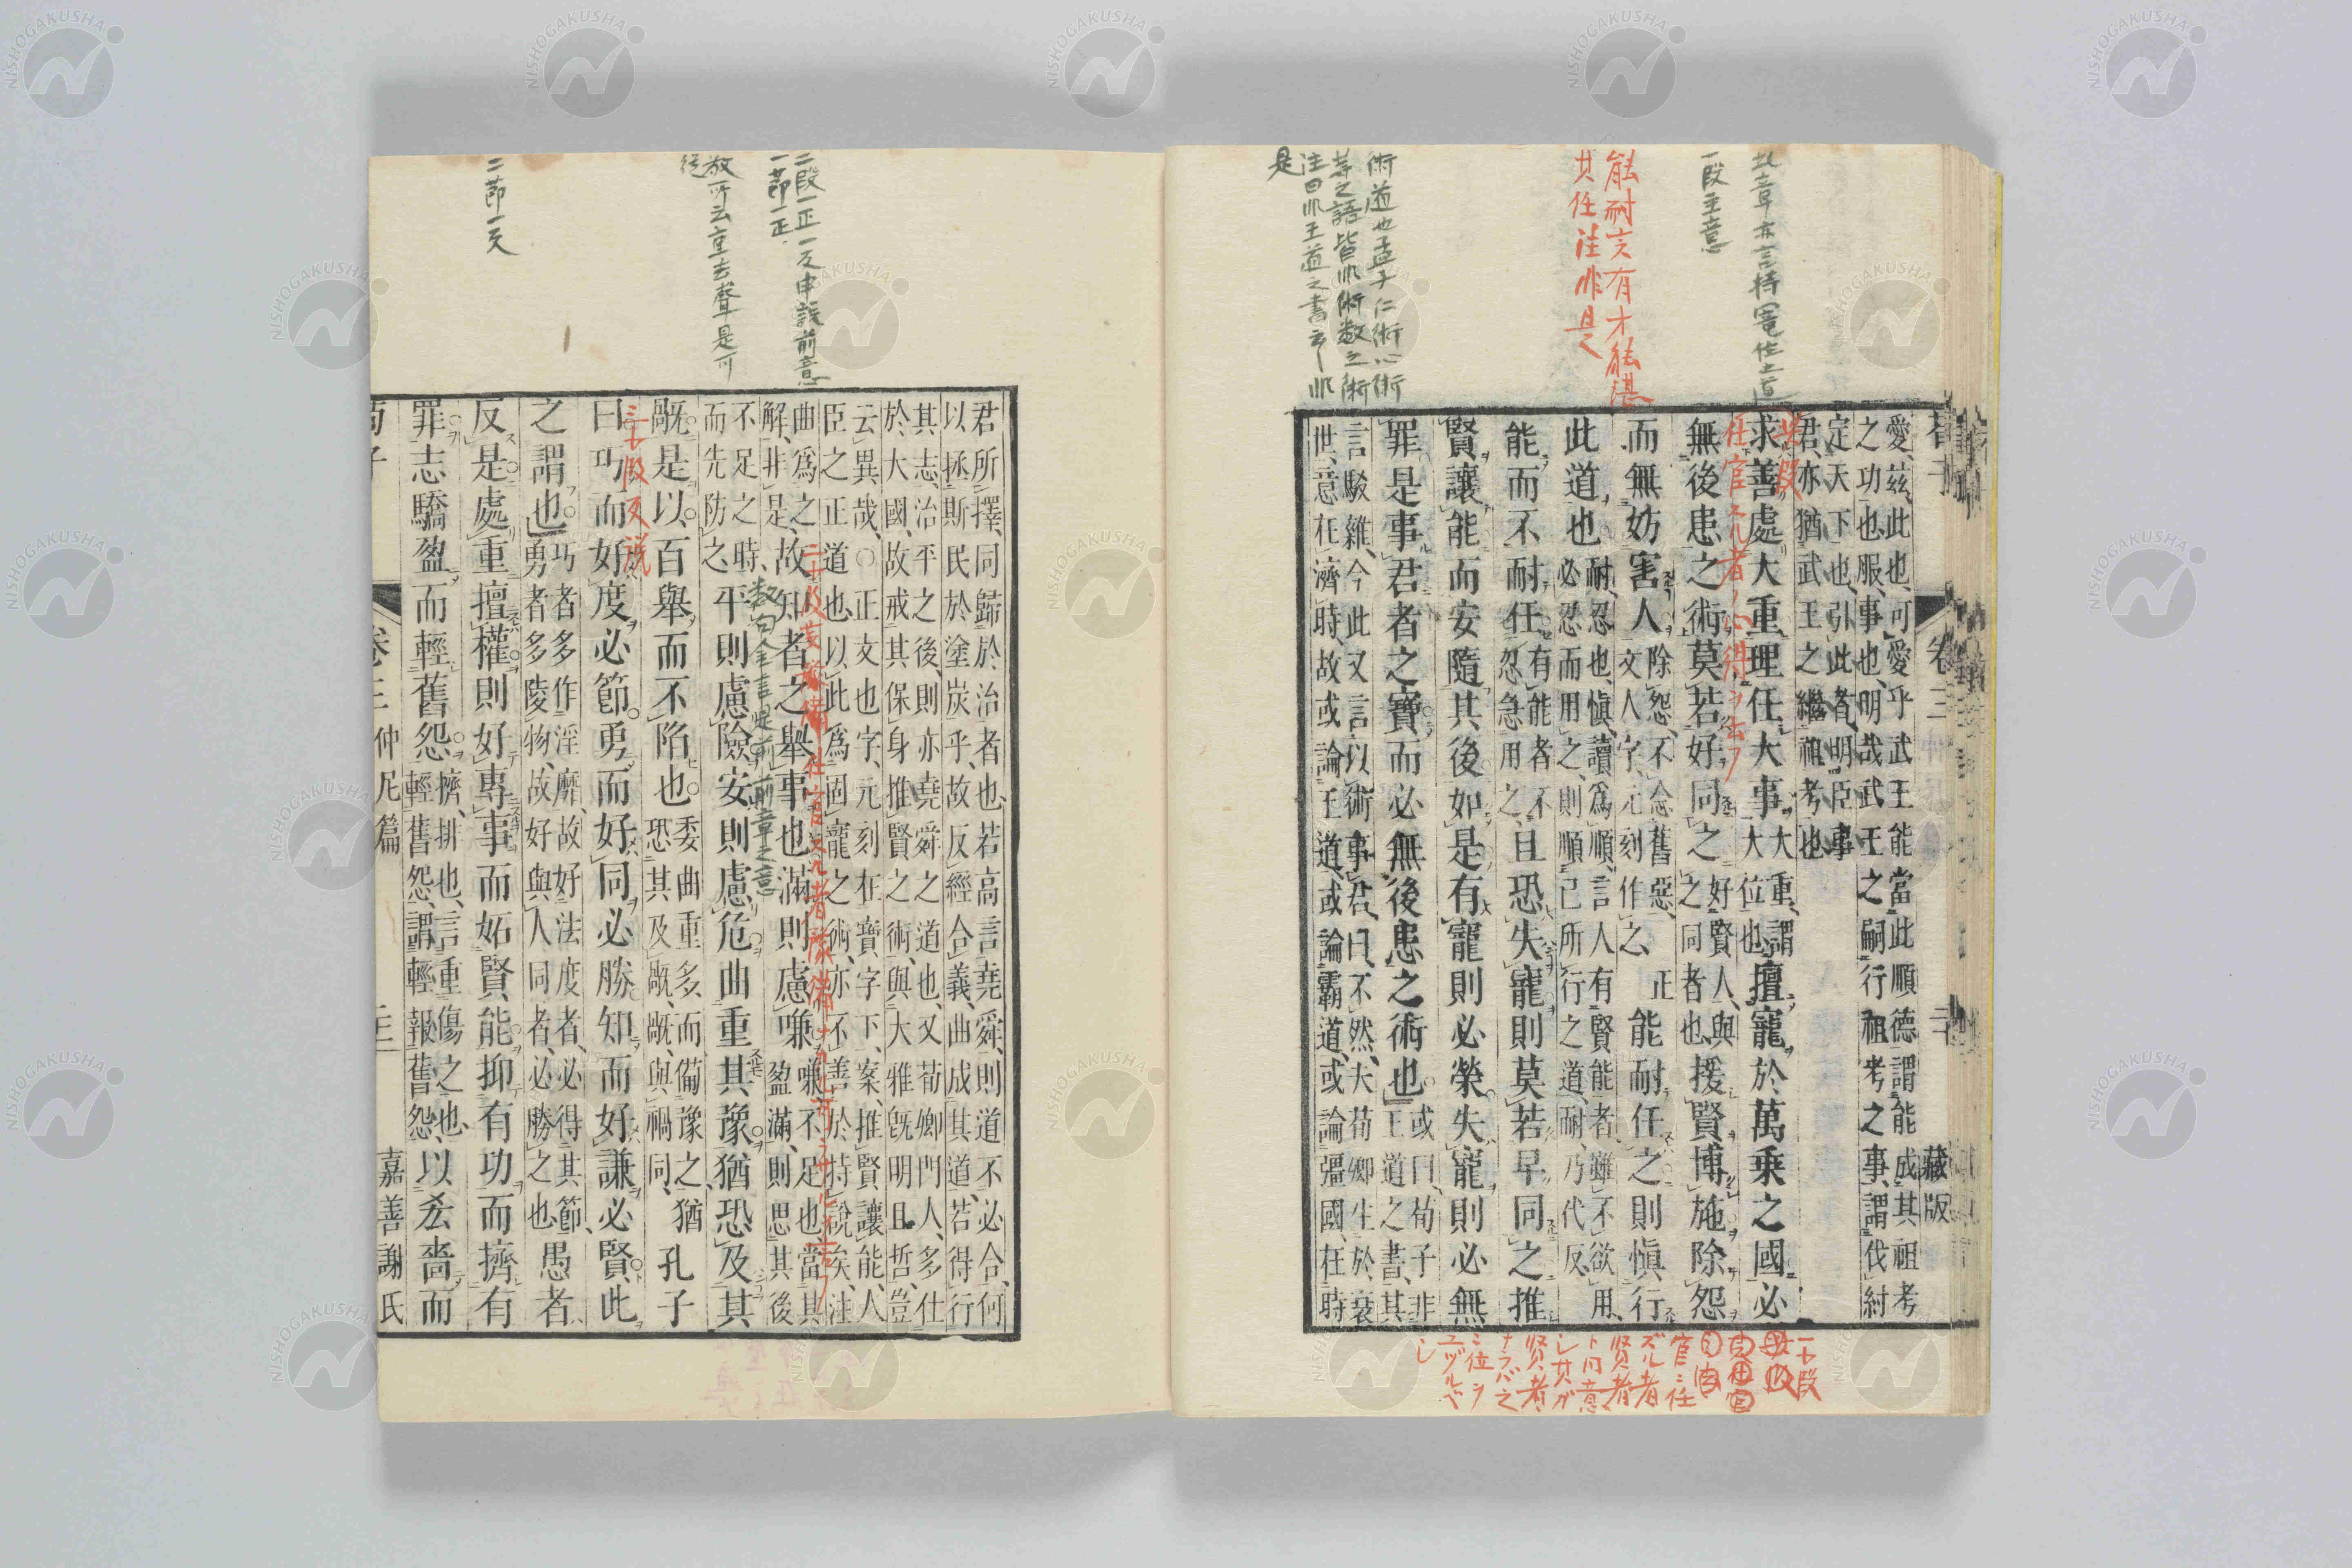 此章亦言持寵位之道
一段主意
能耐言有才能堪
其任注非是
術道也孟子仁術心術
等之語皆非術数之術
注曰非王道之書云々非
是
荀子 卷三 二十 藏版
愛、茲、此也、可愛乎武王能當此順德謂能成其祖考
之功也、服、事也、明哉武王之嗣行祖考之事、謂伐紂
定天下也、引此者、明臣事
君、亦猶武王之繼祖考也
求善處大重理任大事、大重、謂大位也擅寵於萬乘之國必
無後患之術莫若好同之好賢人、與之同者也援賢博施除怨
而無妨害人除怨、不念舊惡、正文人字、元刻作之、能耐任之則愼行
此道也耐、忍也、愼、讀爲順、言人有賢能者、雖不欲用、必忍而用之、則順己所行之道、耐、乃代反、
能而不耐任有能者不忍急用之、且恐失寵則莫若早同之推
賢讓能而安隨其後如是有寵則必榮失寵則必無
罪是事君者之寶而必無後患之術也或曰、荀子非王道之書、其
言駁雜、今此又言以術事君、曰、不然、夫荀卿生於衰
世、意在濟時、故或論王道、或論霸道、或論彊國、在時
一ト段
官ニ任
ズル者
賢者
ト同意
シ其ガ
賢者
ナラバ之
ニ位ヲ
ユヅルベ
シ
二段一正一反申説前意
一節一正
敬所云重去聲是可
從
二節一反
君所擇、同歸於治者也、若高言堯舜、則道不必合、何
以拯斯民於塗炭乎、故反經合義、曲成其道、若得行
其志、治平之後、則亦堯舜之道也、又荀卿門人、多仕
於大國、故戒其保身推賢之術、與大雅旣明且哲、豈
云異哉、○正文也字、元刻在寶字下、案、推賢讓能、人
臣之正道也、以此爲固寵之術、亦不善於持說矣、注
曲爲之解、非是、故知者之舉事也滿則慮嗛嗛不足也當其盈滿、則思其後
不足之時、而先防之、平則慮險安則慮危曲重其豫猶恐及其
数句全言提前
前章之意
旤是以百舉而不陷也委曲重多而備豫之、猶恐其及旤、旤、與禍同、孔子
三ト段反説
曰巧而好度必節勇而好同必勝知而好謙必賢此
之謂也巧者多作淫靡、故好法度者、必得其節、勇者多陵物、故好與人同者、必勝之也愚者
反是處重擅權則好專事而妬賢能抑有功而擠有
罪志驕盈而輕舊怨擠、排也、言重傷之也、輕舊怨、謂輕報舊怨、以吝嗇而
荀子 卷三 仲尼篇 二十一 嘉善謝氏